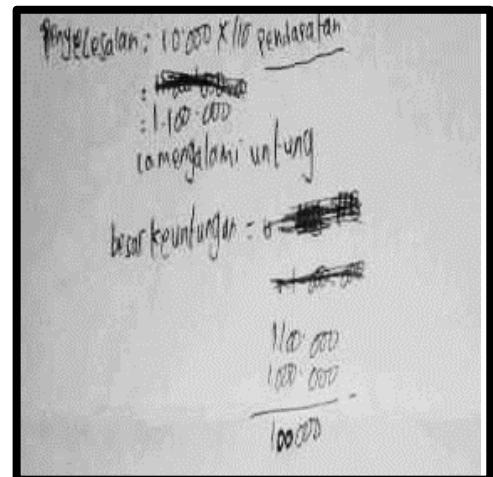 Penyelesaian: 10.000 X 110 pendapatan
=
: 1.100.000
ia mengalami untung
besar keuntungan =
1100.000
1000.000
100000